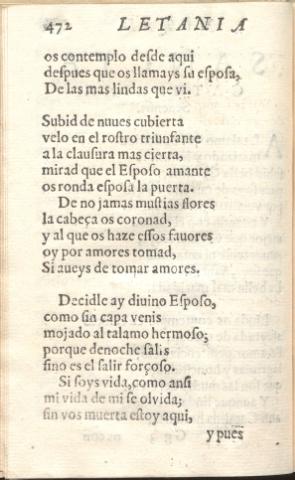 472 LETANIA
os contemplo desde aqui
despues que os llamays su esposa,
De las mas lindas que vi.
Subid de nuues cubierta
velo en el rostro triunfante
a la clausura mas cierta,
mirad que el Esposo amante
os ronda esposa la puerta.
De no jamas mustias flores
la cabeça os coronad,
y al que os haze essos fauores
oy por amores tomad,
Si aueys de tomar amores.
Dezidle ay diuino Esposo,
como sin capa venis
mojado al talamo hermoso;
porque denoche salis
sino es el salir forçoso.
Si soys vida, como ansi
mi vida de mi se olvida;
sin vos muerta estoy aqui,
y pues